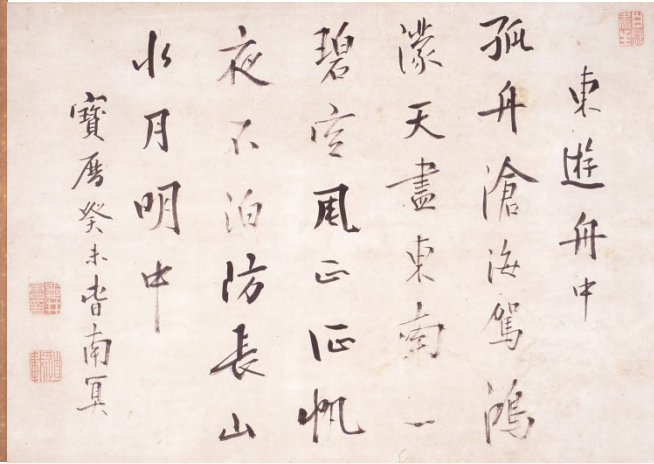 東遊舟中
孤舟滄海駕鴻
濛天盡東南一
碧空風正征帆
夜不泊防長山
水月明中
寶暦癸未旹南冥